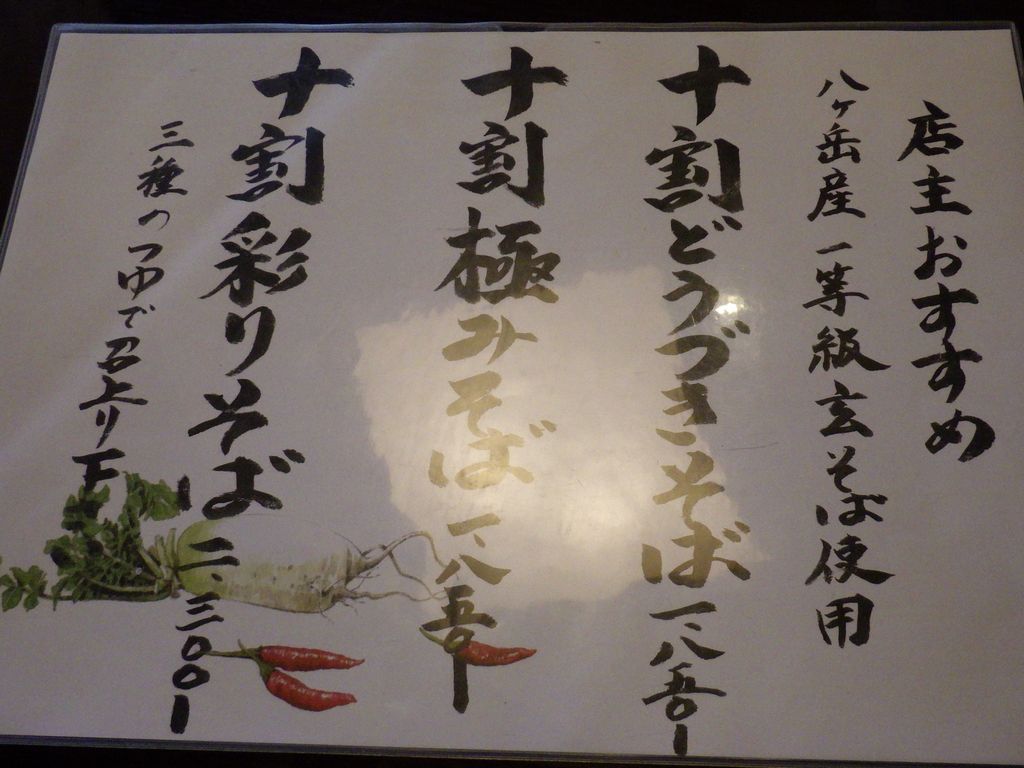 店主おすすめ
八ヶ岳産一等級玄そば使用
十割どうづきそば 一、八五〇ー
十割極みそば 一、八五〇ー
十割彩りそば 二、三〇〇ー
三種のつゆで召上り下